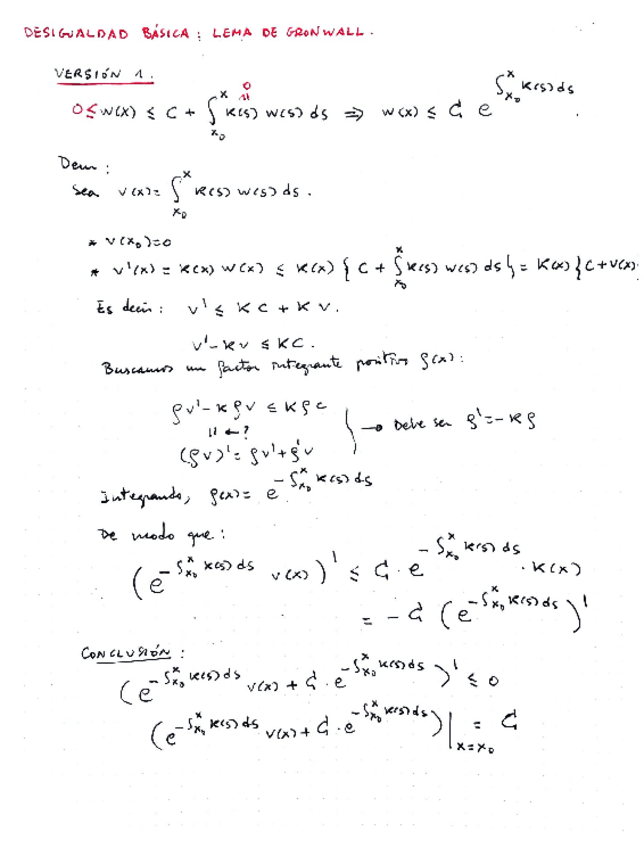 DESIGUALDAD BÁSICA : LEMA DE GRONWALL.
VERSIÓN 1.
0 ≤ w(x) ≤ C + ∫_{x₀}^{x} K(s) w(s) ds ⇒ w(x) ≤ C e^{∫_{x₀}^{x} K(s) ds}.
Dem :
Sea v(x) = ∫_{x₀}^{x} K(s) w(s) ds.
* v(x₀) = 0
* v'(x) = K(x) w(x) ≤ K(x) { C + ∫_{x₀}^{x} K(s) w(s) ds } = K(x) { C + v(x)
Es decir : v' ≤ K C + K v.
v' - K v ≤ K C.
Buscamos un factor integrante positivo ρ(x) :
ρ v' - K ρ v ≤ K ρ C
|| ← ?
(ρ v)' = ρ v' + ρ' v
→ Debe ser ρ' = - K ρ
Integrando, ρ(x) = e^{-∫_{x₀}^{x} K(s) ds}
De modo que :
(e^{-∫_{x₀}^{x} K(s) ds} v(x))' ≤ C · e^{-∫_{x₀}^{x} K(s) ds} · K(x)
= - C (e^{-∫_{x₀}^{x} K(s) ds})'
CONCLUSIÓN :
(e^{-∫_{x₀}^{x} K(s) ds} v(x) + C · e^{-∫_{x₀}^{x} K(s) ds})' ≤ 0
(e^{-∫_{x₀}^{x} K(s) ds} v(x) + C · e^{-∫_{x₀}^{x} K(s) ds})|_{x=x₀} = C